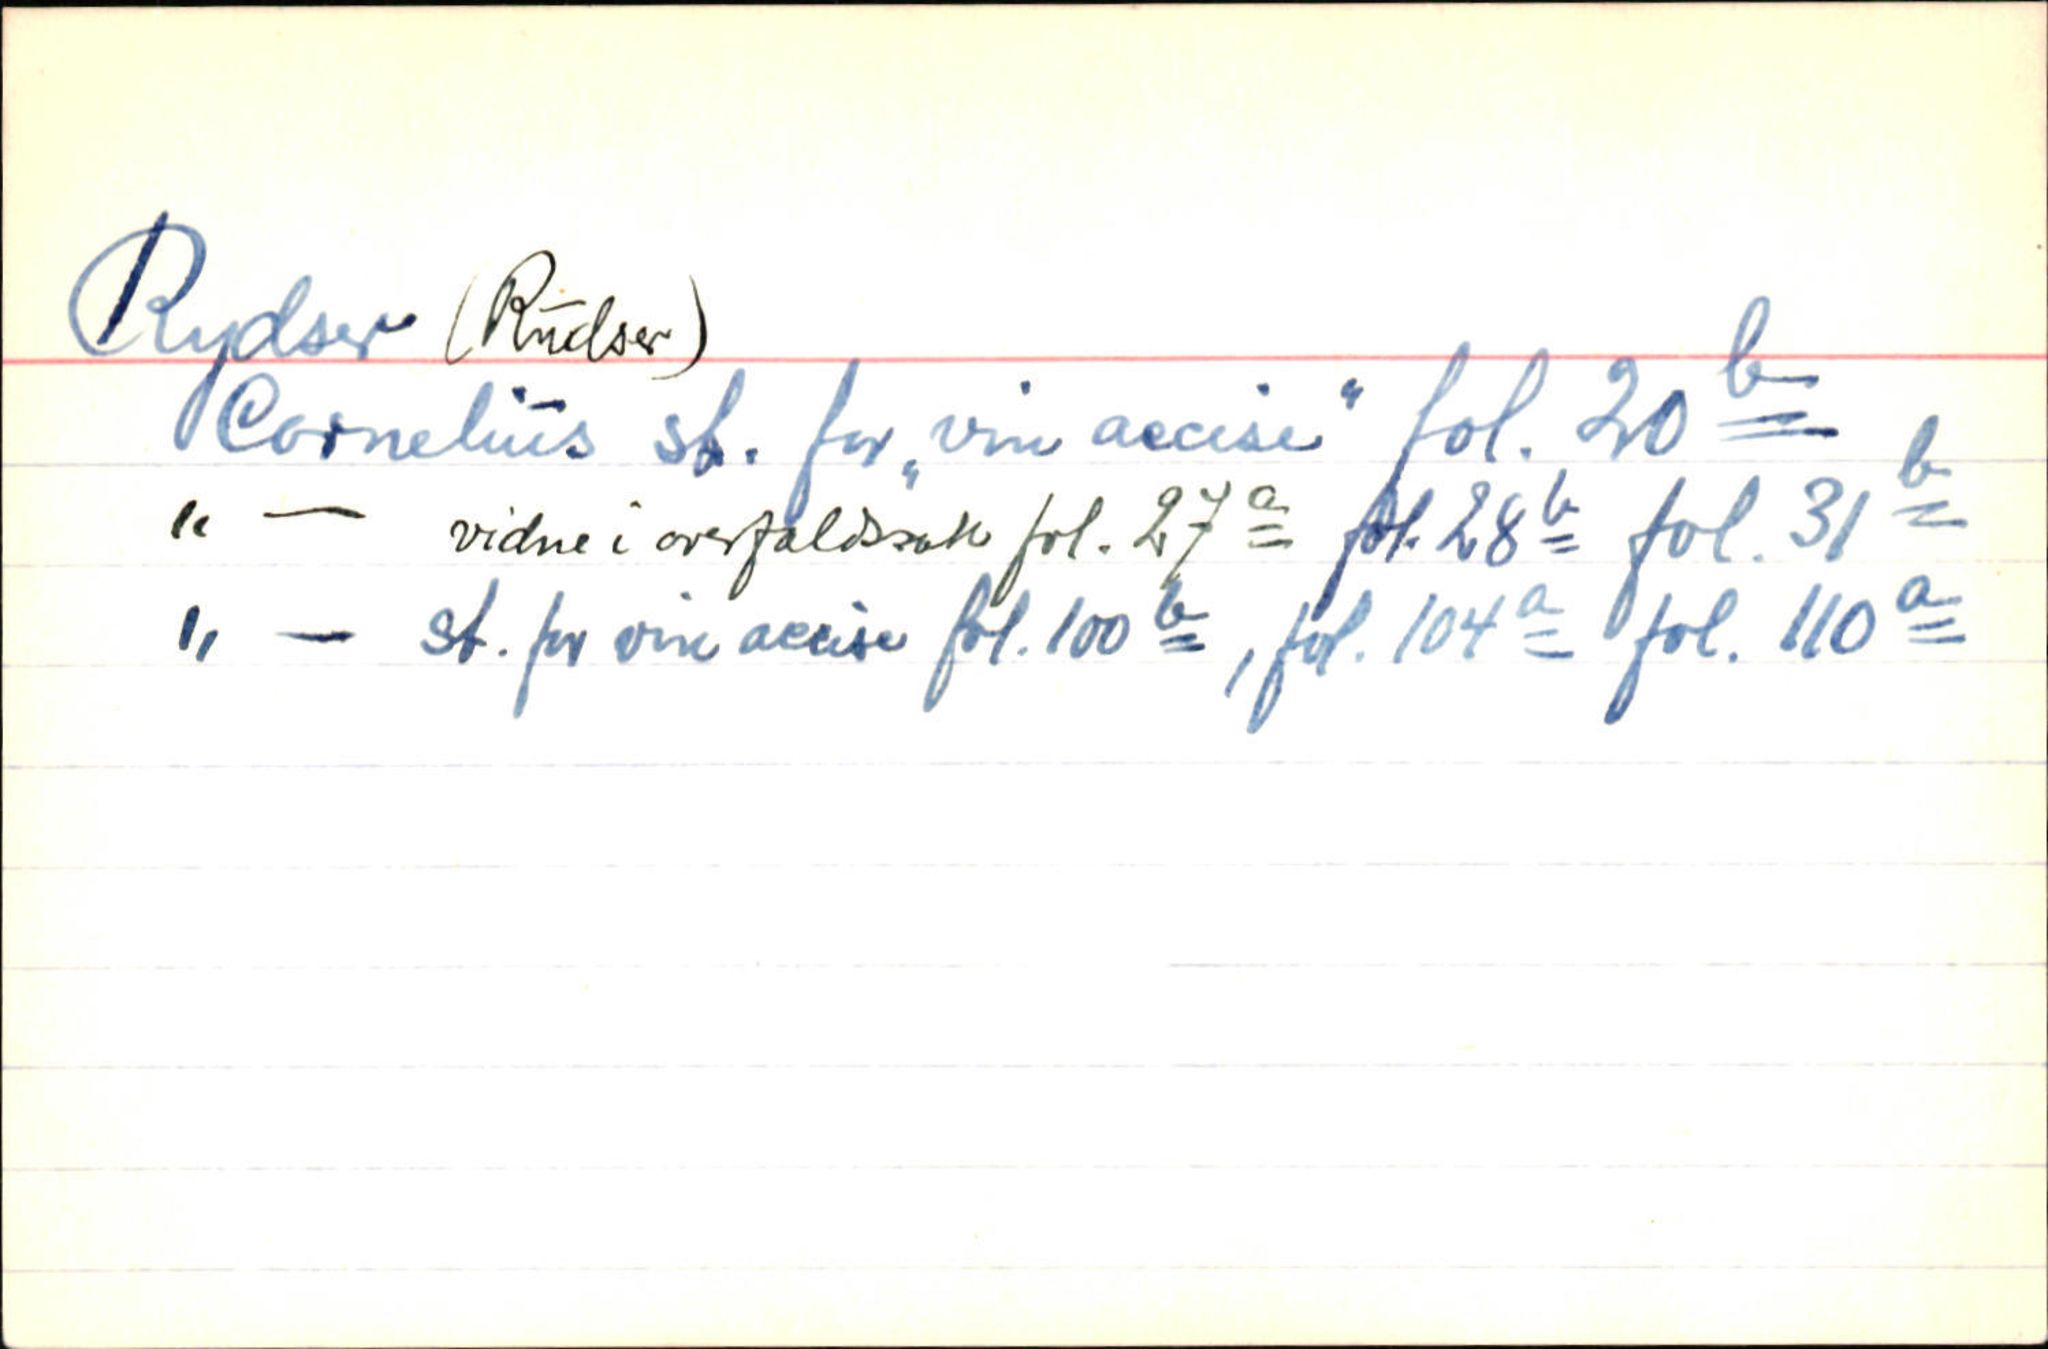 Rydser (Rūdser)
Corneliūs st. for „vin accise“ fol. 20 b
" — vidne i overfaldssak fol. 27 a fol. 28 b fol. 31 b
" — st. for vin accise fol. 100 b, fol. 104 a fol. 110 a